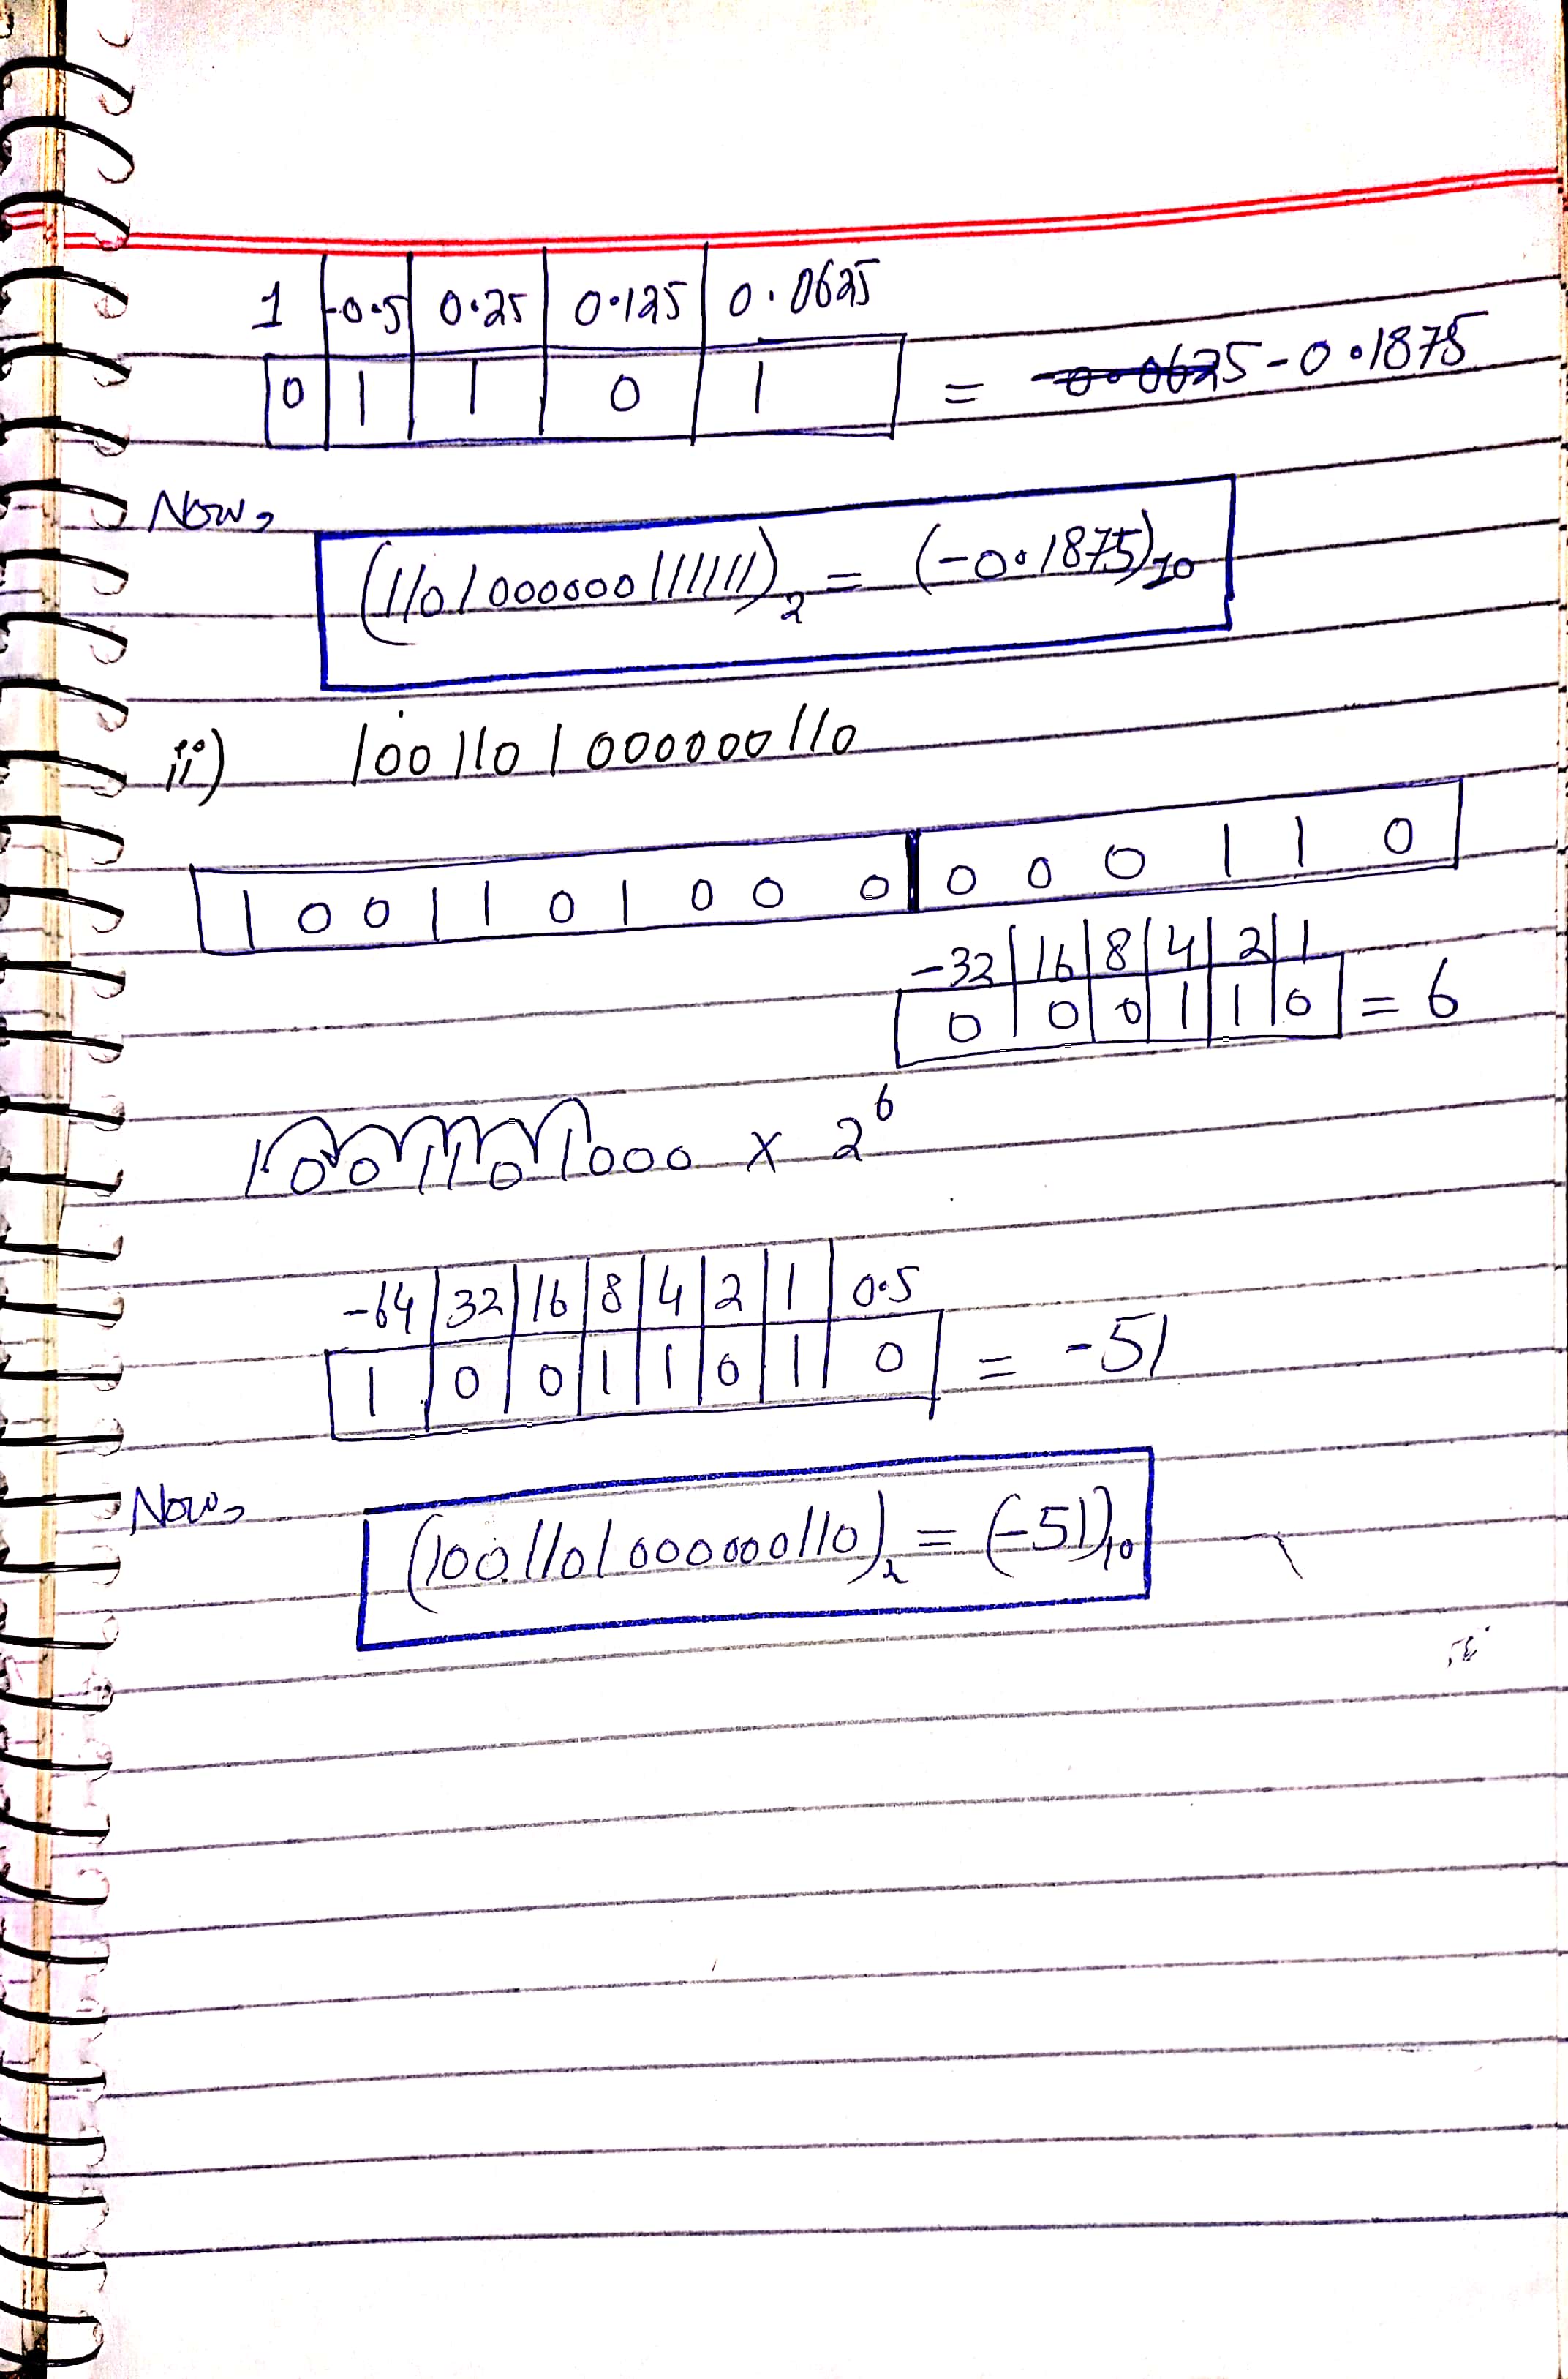 1 | -0.5 | 0.25 | 0.125 | 0.0625
0 | 1 | 1 | 0 | 1 = -0.1875
Now,
(1101000000111111)₂ = (-0.1875)₁₀
ii) 1001101000000110
1 0 0 1 1 0 1 0 0 0 | 0 0 0 1 1 0
-32 | 16 | 8 | 4 | 2 | 1
0 | 0 | 0 | 1 | 1 | 0 = 6
1001101000 × 2⁶
-64 | 32 | 16 | 8 | 4 | 2 | 1 | 0.5
1 | 0 | 0 | 1 | 1 | 0 | 1 | 0 = -51
Now,
(1001101000000110)₂ = (-51)₁₀